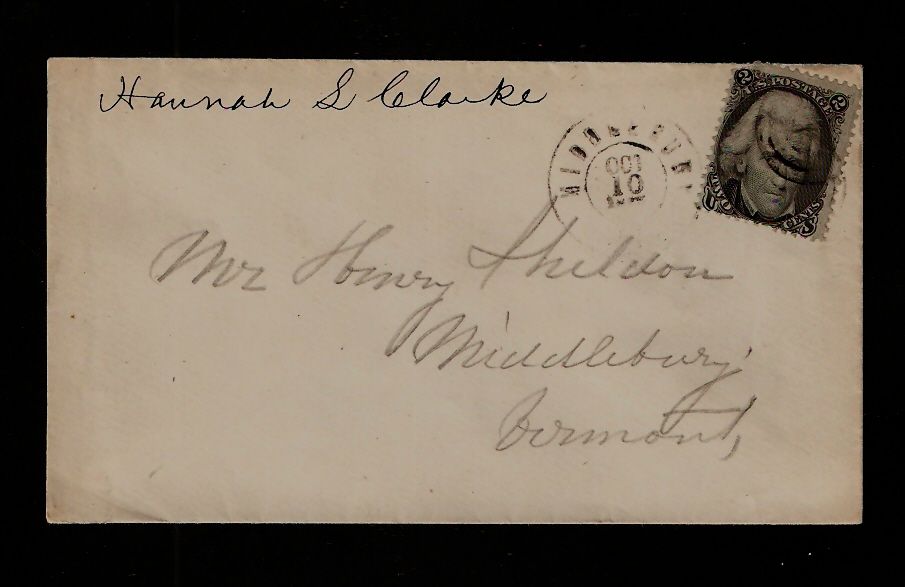 Hannah S Clarke
MIDDLEBURY
OCT
10
2 U.S. POSTAGE 2
TWO CENTS
Mr Henry Sheldon
Middlebury
Vermont,